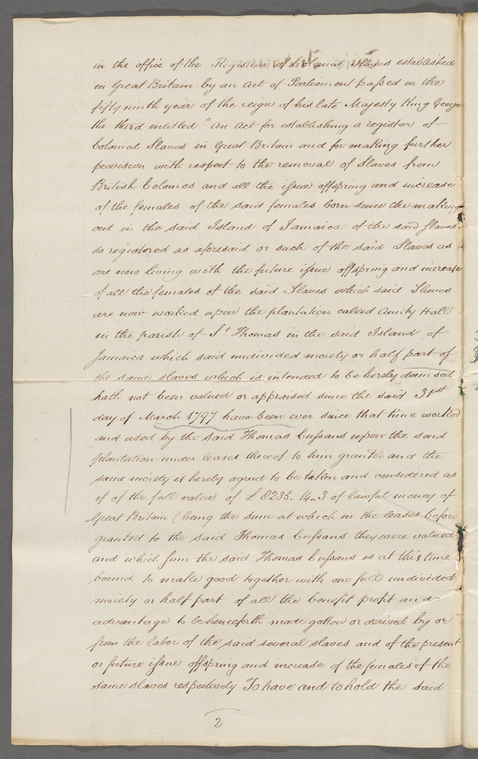 in the office of the Registrar of Colonial Slaves established
in Great Britain by an Act of Parliament paſsed in the
fifty ninth year of the reign of his late Majesty King George
the third entitled "An Act for establishing a register of
Colonial Slaves in Great Britain and for making further
provision with respect to the removal of Slaves from
British Colonies and all the iſsue offspring and increase
of the females of the said females born since the making
out in the said Island of Jamaica of the said Slaves
so registered as aforesaid or such of the said Slaves as
are now living with the future iſsue offspring and increase
of all the females of the said Slaves which said Slaves
are now worked upon the plantation called Amity Hall
in the parish of St Thomas in the said Island of
Jamaica which said undivided moiety or half part of
the same slaves which is intended to be hereby demised
hath not been valued or appraised since the said 31st
day of March 1797 have been ever since that time worked
and used by the said Thomas Cuſsans upon the said
plantation under leases thereof to him granted and the
same moiety is hereby agreed to be taken and considered as
if of the full value of £8236.14.3 of lawful money of
Great Britain (being the sum at which in the leases before
granted to the said Thomas Cuſsans they were valued
and which sum the said Thomas Cuſsans is at this time
bound to make good together with one full undivided
moiety or half part of all the benefit profit and
advantage to be henceforth made gotten or derived by or
from the labor of the said several slaves and of the present
or future iſsue offspring and increase of the females of the
same slaves respectively To have and to hold the said
2